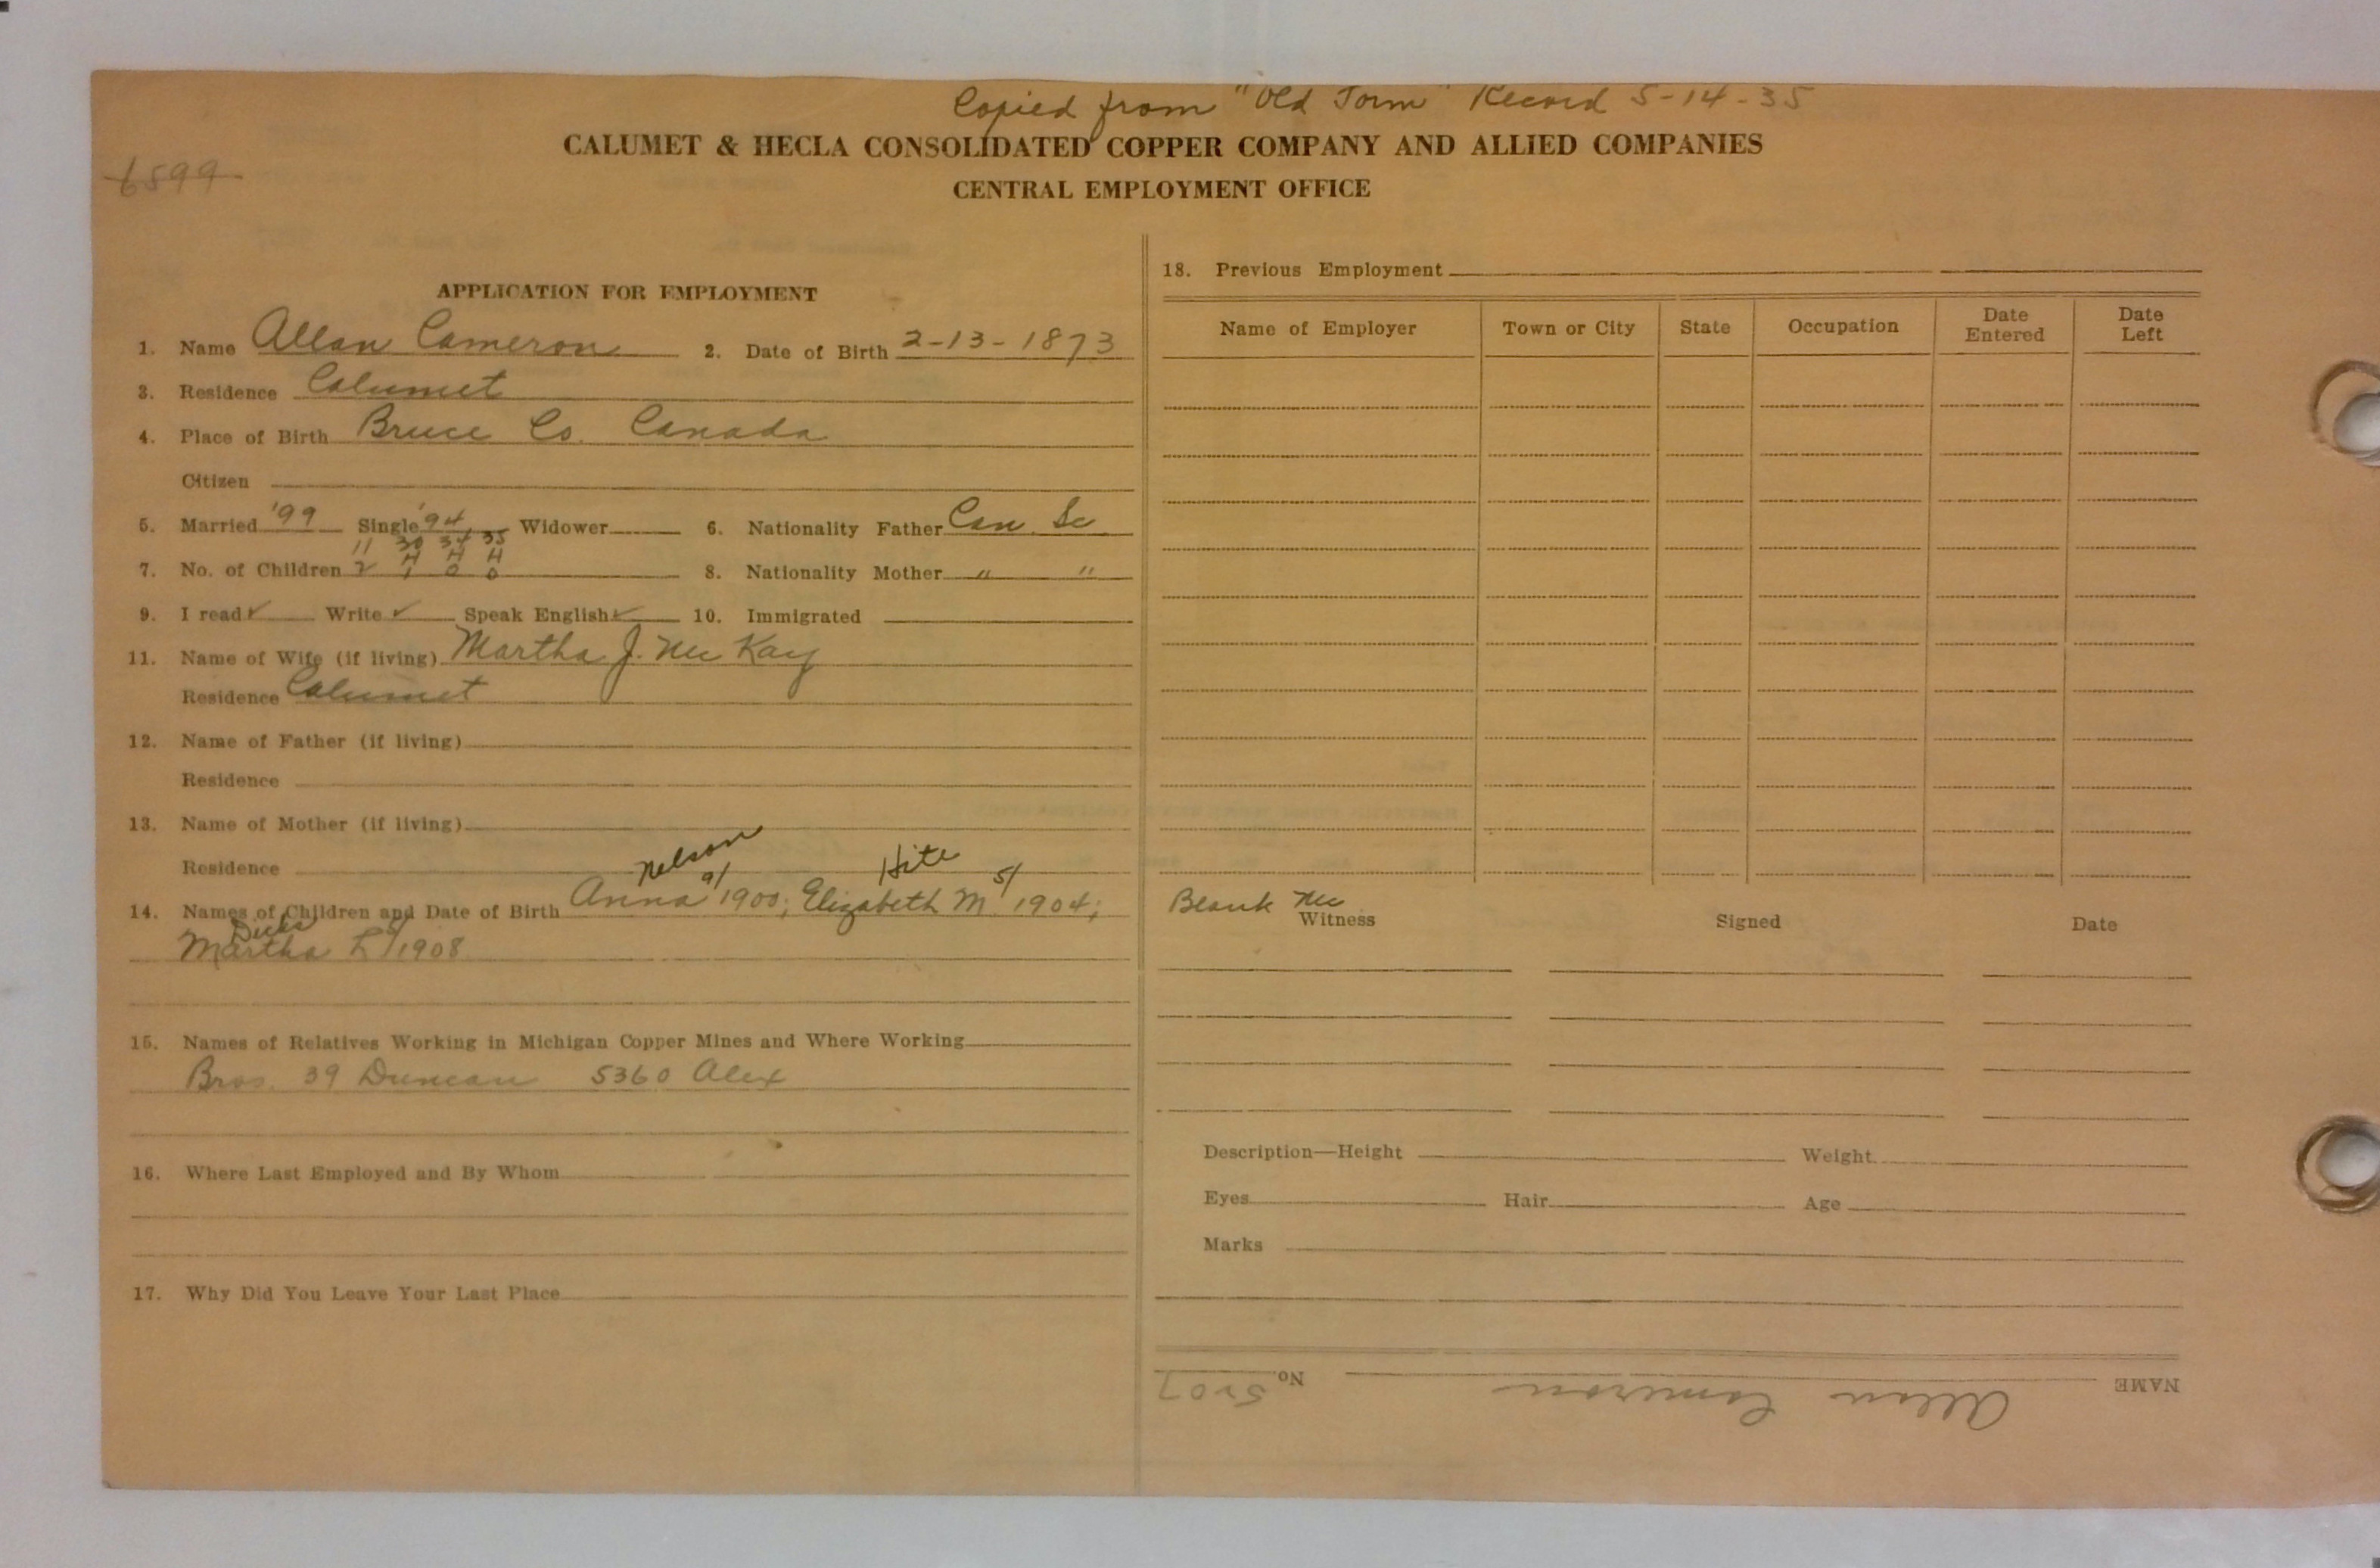 Copied from "Old Form" Record 5-14-35
CALUMET & HECLA CONSOLIDATED COPPER COMPANY AND ALLIED COMPANIES
6599
CENTRAL EMPLOYMENT OFFICE
APPLICATION FOR EMPLOYMENT
1. Name Allan Cameron 2. Date of Birth 2-13-1873
3. Residence Calumet
4. Place of Birth Bruce Co. Canada
Citizen
5. Married '99 Single '94 Widower 6. Nationality Father Can. Sc
11 30 34 35
H H H
7. No. of Children 2 1 0 0 8. Nationality Mother " "
9. I read ✓ Write ✓ Speak English ✓ 10. Immigrated
11. Name of Wife (if living) Martha J. Mc Kay
Residence Calumet
12. Name of Father (if living)
Residence
13. Name of Mother (if living)
Residence
Nelson Hite
14. Names of Children and Date of Birth Anna 9/1900; Elizabeth M. 5/1904;
Martha L /1908
15. Names of Relatives Working in Michigan Copper Mines and Where Working
Bros. 39 Duncan 5360 Alex
16. Where Last Employed and By Whom
17. Why Did You Leave Your Last Place
18. Previous Employment
Name of Employer Town or City State Occupation Date Entered Date Left
Blank
Witness Signed Date
Description—Height Weight
Eyes Hair Age
Marks
NAME Allan Cameron No. 5207